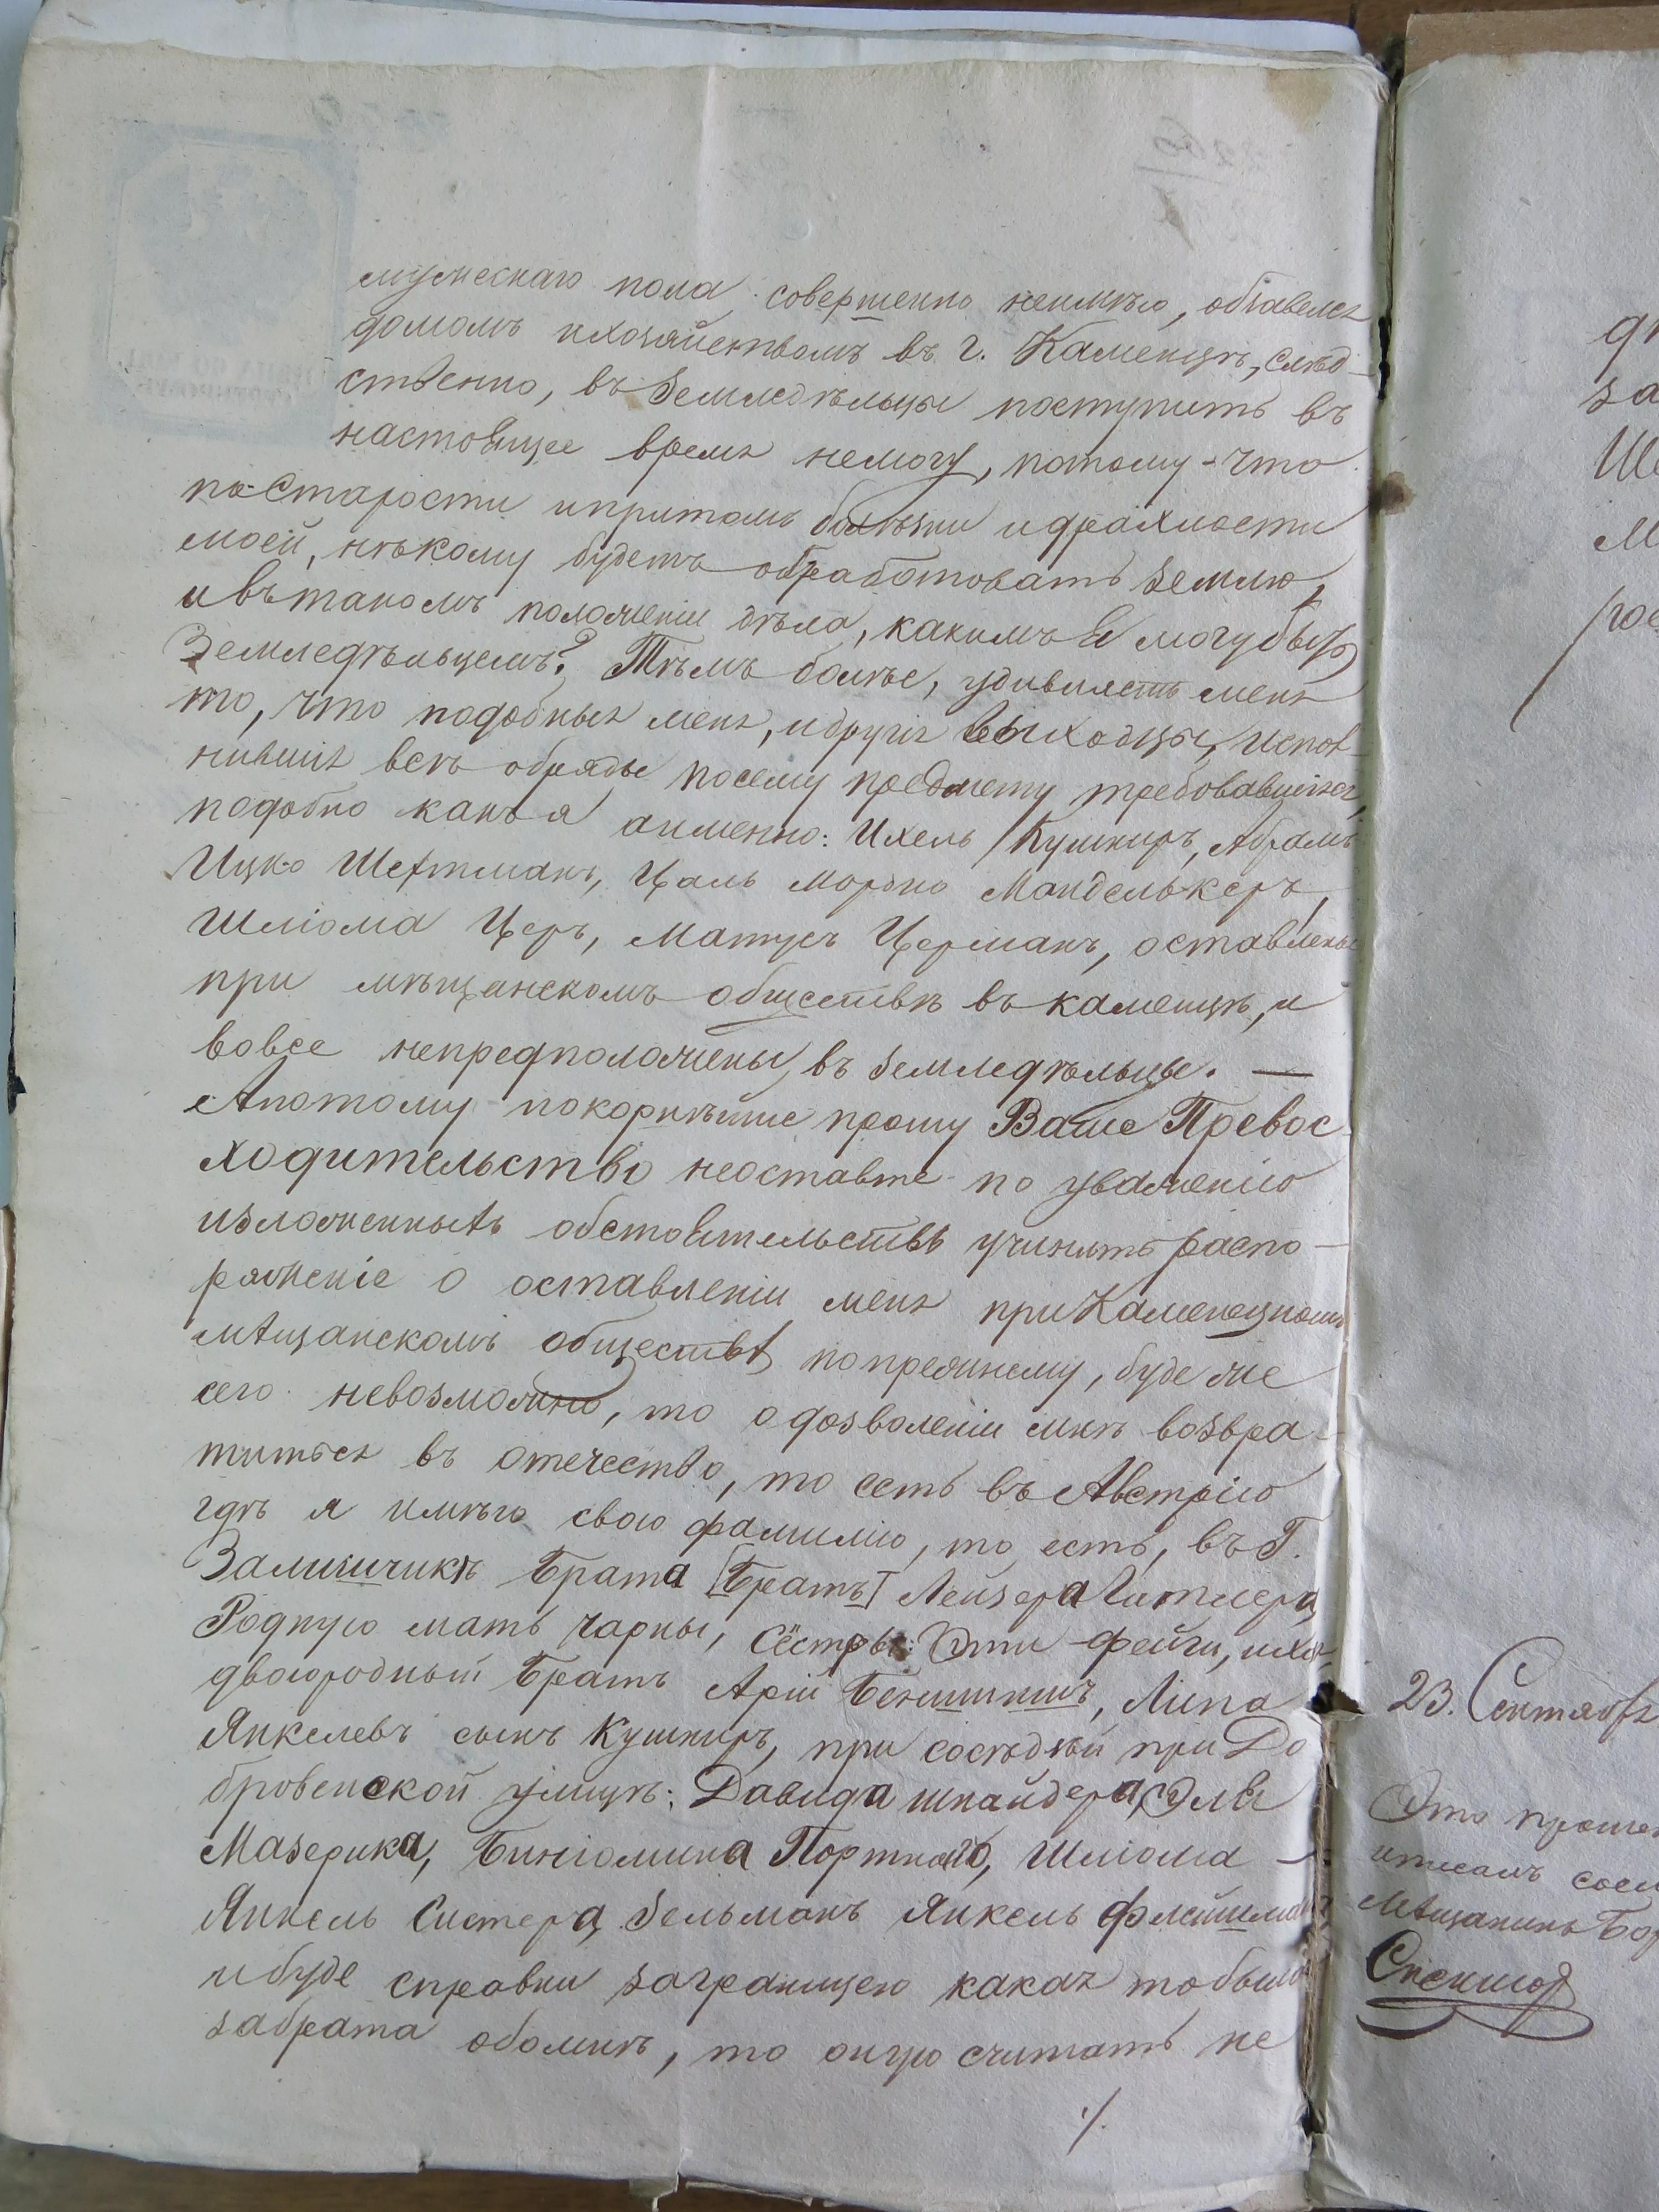 мужескаго пола совершенно неимѣю, обзавелся
домомъ ихозяйствомъ въ г. Каменцѣ, слѣд-
ственно, въ Земледѣльцы поступить въ
настоящее время немогу, потому-что
по старости ипритомъ болѣзни идряхлости
моей, нѣкому будетъ обработовать землю,
ивътакомъ положеніи дѣла, какимъ я могу быть
Земледѣльцемъ? Тѣмъ болѣе, удивляетъ меня
то, что подобныя меня, идругія выходцы, испол-
нившія всѣ обряды посему предмету требовавшіяся,
подобно какъ я аименно: Ихель Кушниръ, Абрамъ
Ицко Шехтманъ, Цаль Мордко Манделькеръ,
Шліома Церъ, Матусъ Церманъ, оставлены
при мѣщанскомъ обществѣ въ каменцѣ, и
вовсе непредположены въ земледѣльцы. —
Апотому покорнѣйше прошу Ваше Превос-
ходительство неоставте по уваженію
изложенныхъ обстоятельствъ учинить распо-
ряженіе о оставленіи меня при Каменецкомъ
мѣщанскомъ обществѣ попрежнему, буде же
сего невозможно, то одозволеніи мнѣ возвра-
титься въ отечество, то есть въ Австрію
гдѣ я имѣю свою фамилію, то есть, въ Г.
Залищикѣ брата [братъ] Лейзера
Родную мать Чарны, Сестры: Эти фейги, иха
двоюродный братъ Арій, Липа
Янкелевъ сынъ Кушниръ, при сосѣдѣй при До
бровенской улицѣ: Давида шнайдера, Эля
Мазерика, Биніомина Портнаго, Шліома —
Янкель Систера Зельманъ Янкель
ибуде справки заграницею какая тобыла
забрата обомнѣ, то оную считать не
./.
23. Сентября
Это
Мѣщанинъ